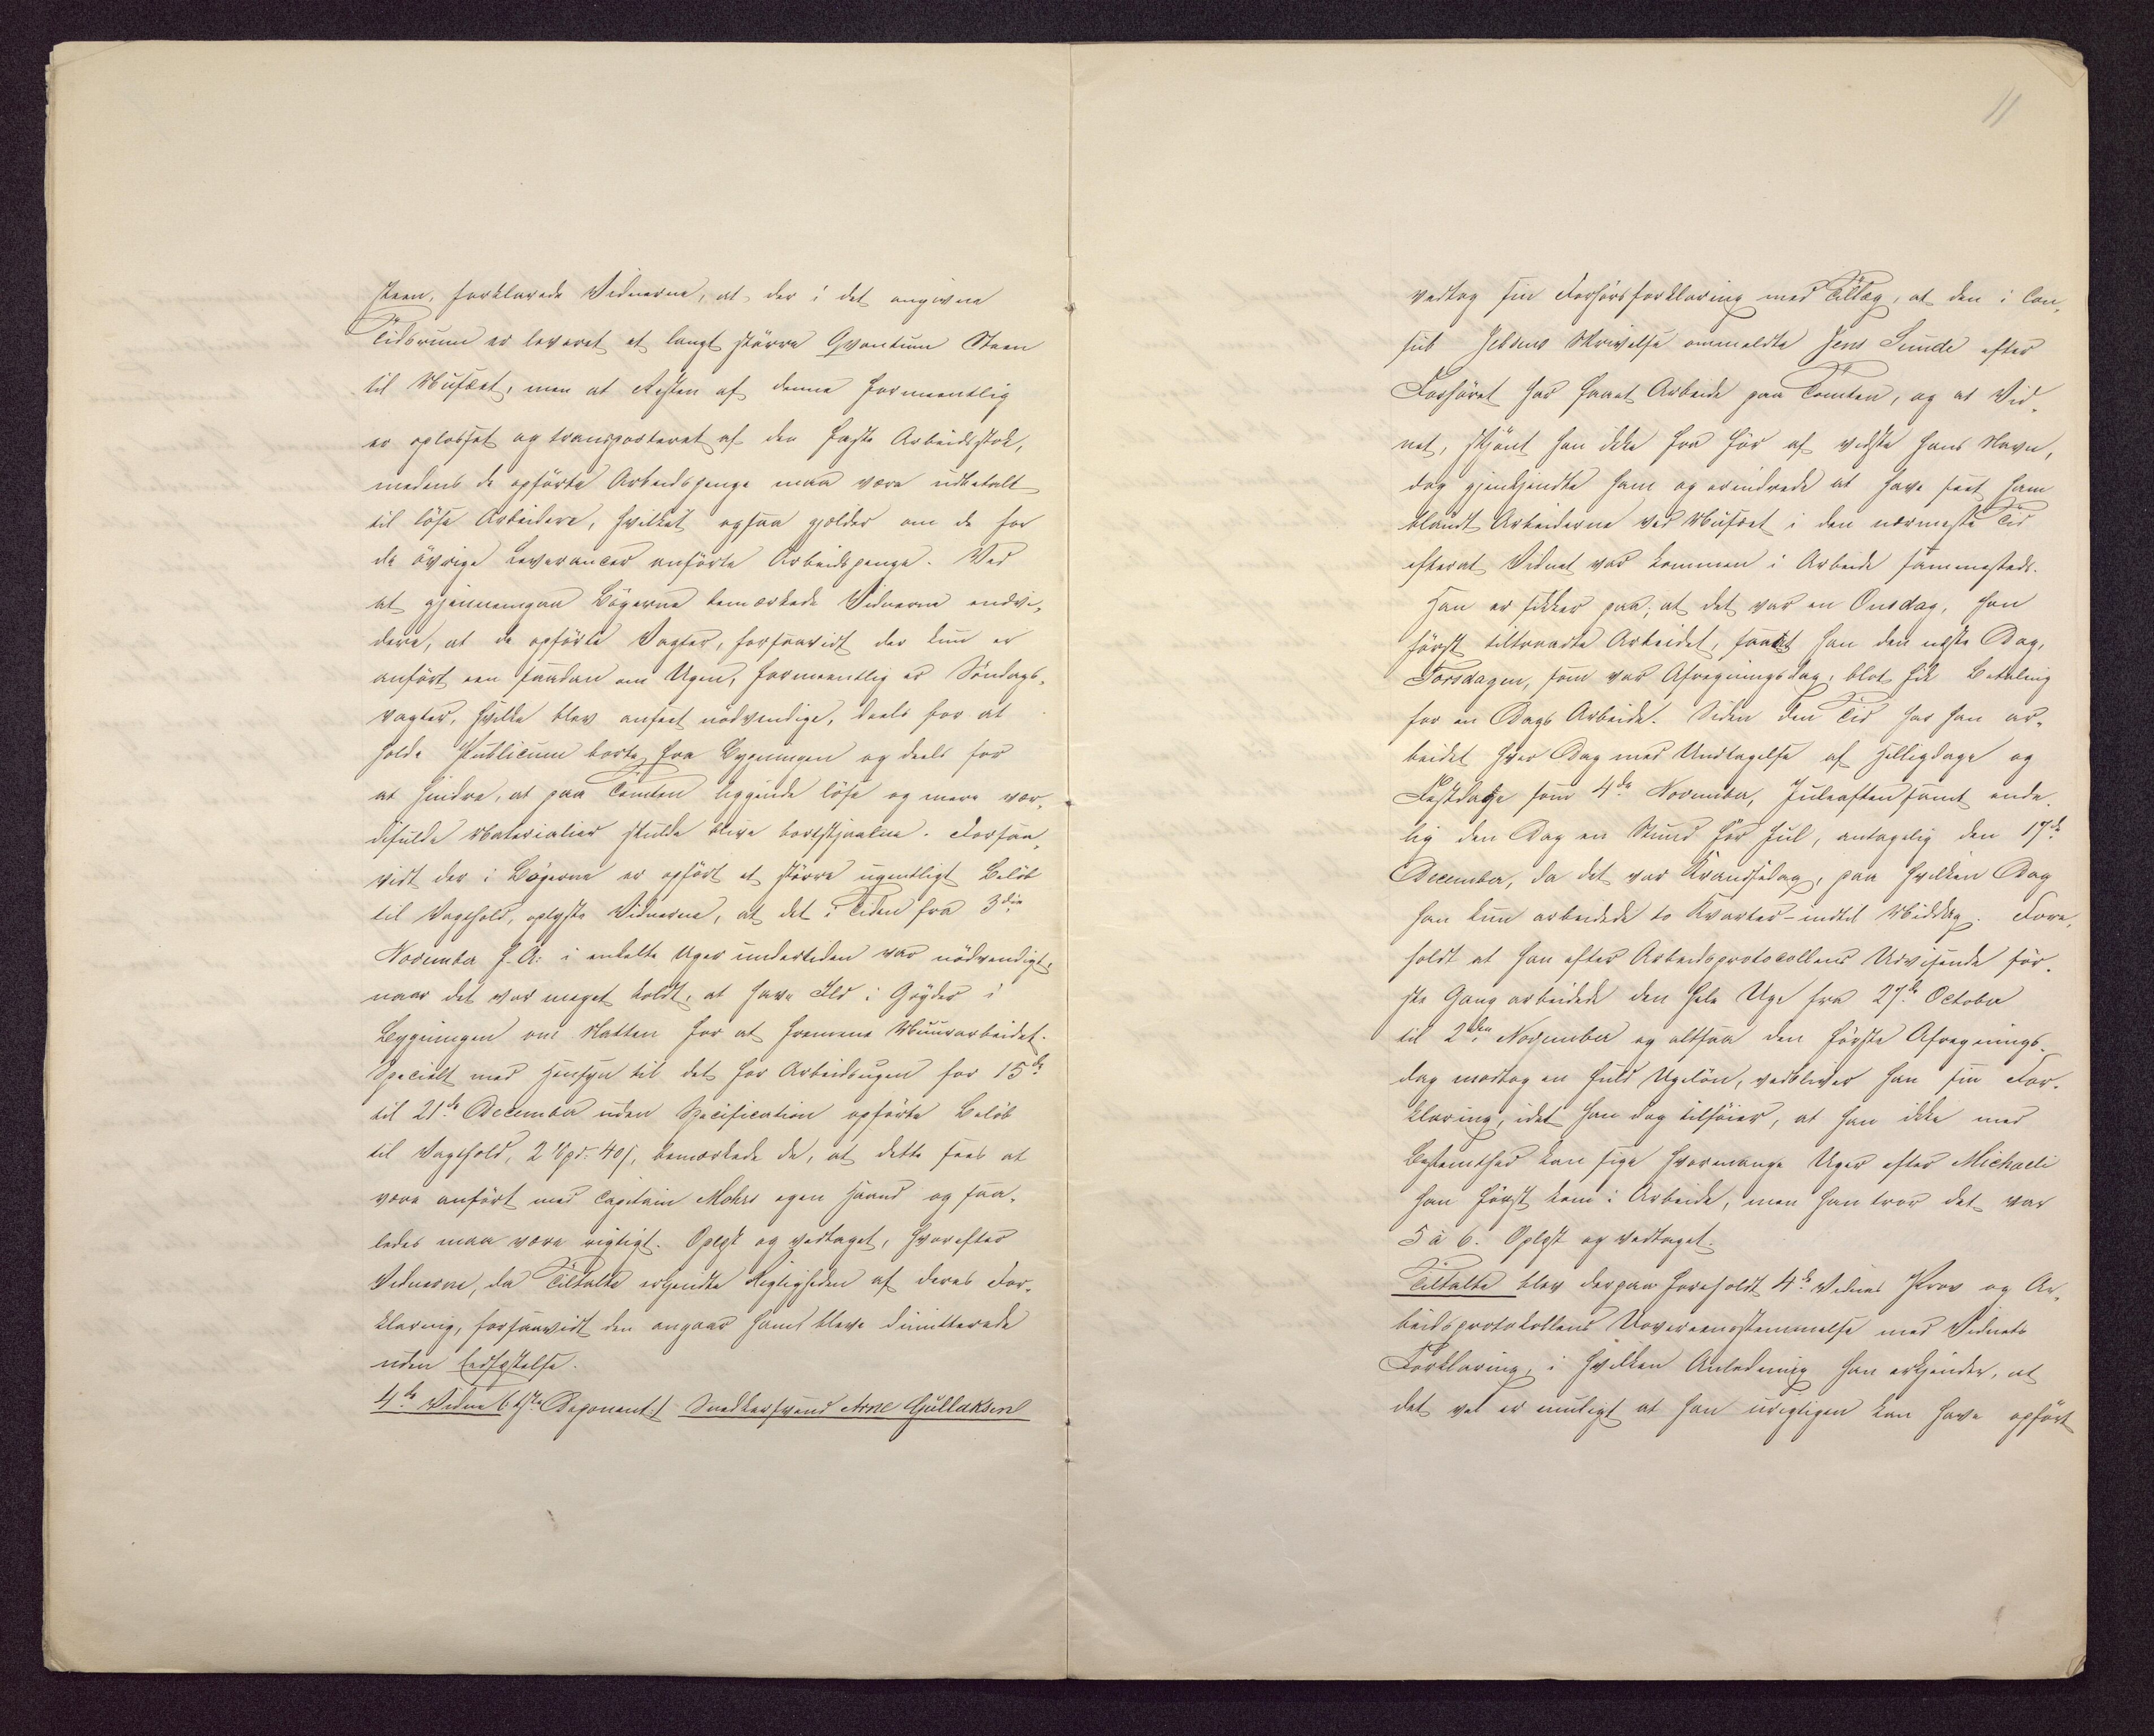 11
steen, forklarede Vidnerne, at der i det angivne
Tidsrum er leveret et langt större Qvantum Steen
til Musæet, men at Resten af denne formeentlig
er oplosset og transporteret af den faste Arbeidsstok,
medens de opförte Arbeidspenge maa være udbetalt
til löse Arbeidere, hvilket ogsaa gjælder om de for
de övrige Leverancer anförte Arbeidspenge. Ved
at gjennemgaa Bögerne bemærkede Vidnerne endvi-
dere, at de opförte Vagter, forsaavidt der kun er
anfört een saadan om Ugen, formeentlig er Söndags-
vagter, hvilke blev anseet nödvendige, deels for at
holde Publicum borte fra Bygningen og deels for
at hindre, at paa Tomten liggende löse og mere vær-
difulde Materialier skulde blive bortstjaalne. Forsaa-
vidt der i Bögerne er opfört et större ugentligt Belöb
til Vagthold, oplyste Vidnerne, at det i Tiden fra 3die
November f. A. i enkelte Uger undertiden var nödvendigt,
naar det var meget koldt, at have Ild i Gryder i
Bygningen om Natten for at fremme Muurarbeidet.
Specielt med Hensyn til det for Arbeidsugen for 15de
til 21de December uden Specification opförte Belöb
til Vagthold, 2 Spd. 40 s, bemærkede de, at dette sees at
være anfört med Capitain Mohrs egen Haand og saa-
ledes maa være rigtigt. Oplæst og vedtaget, hvorefter
Vidnerne, da Tiltalte erkjendte Rigtigheden af deres For-
klaring, forsaavidt den angaar ham blev dimitterede
uden Edfæstelse.
4de Vidne (: 4de Deponent :) Snedkersvend Arne Gullaksen
vedtog sin Forhörsforklaring med Tillæg, at den i Con-
sul Jebsens Skrivelse ommeldte Jens Sunde efter
Forhöret har faaet Arbeide paa Tomten, og at Vid-
net, skjönt han ikke fra för af vidste hans Navn,
dog gjenkjendte ham og erindrede at have seet ham
blandt Arbeiderne ved Musæet i den nærmeste Tid
efterat Vidnet var kommen i Arbeide sammesteds.
Han er sikker paa, at det var en Onsdag, han
först tiltraadte Arbeidet, saaat han den næste Dag,
Torsdagen, som var Afregningsdag, blot fik Betaling
for en Dags Arbeide. Siden den Tid har han ar-
beidet hver Dag med Undtagelse af Helligdage og
Festdage som 4de November, Juleaften samt ende-
lig den Dag en Stund för Jul, antagelig den 17de
December, da det var Krandsedag, paa hvilken Dag
han kun arbeidede to Kvarter - indtil Middag. Fore-
holdt at han efter Arbeidsprotocollens Udvisende för-
ste Gang arbeidede den hele Uge fra 27de October
til 2den November og altsaa den förste Afregnings-
dag modtog en fuld Ugelön, vedbliver han sin For-
klaring, idet han dog tilföier, at han ikke med
Bestemthed kan sige hvormange Uger efter Michaeli
han först kom i Arbeide, men han tror det var
5 à 6. Oplæst og vedtaget.
Tiltalte blev derpaa foreholdt 4de Vidnes Prov og Ar-
beidsprotokollens Uovereensstemmelse med Vidnets
Forklaring, i hvilken Anledning han erkjender, at
det vel er muligt at han urigtigen kan have opfört